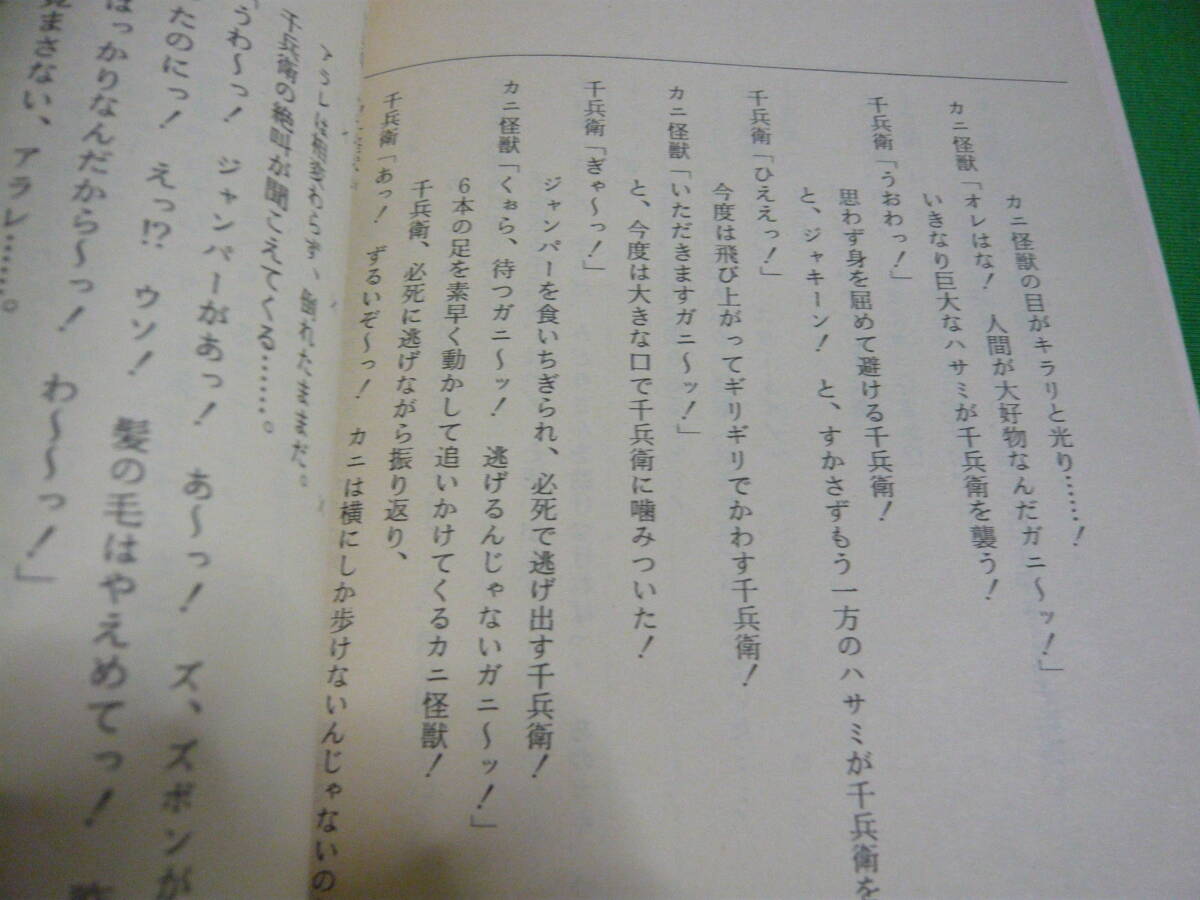 カニ怪獣の目がキラリと光り……！
カニ怪獣「オレはな！　人間が大好物なんだガニ〜ッ！」
いきなり巨大なハサミが千兵衛を襲う！
千兵衛「うおわっ！」
思わず身を屈めて避ける千兵衛！
と、ジャキーン！　と、すかさずもう一方のハサミが千兵衛を
千兵衛「ひええっ！」
今度は飛び上がってギリギリでかわす千兵衛！
カニ怪獣「いただきますガニ〜ッ！」
と、今度は大きな口で千兵衛に噛みついた！
千兵衛「ぎゃ〜っ！」
ジャンパーを食いちぎられ、必死で逃げ出す千兵衛！
カニ怪獣「くぉら、待つガニ〜ッ！　逃げるんじゃないガニ〜ッ！」
6本の足を素早く動かして追いかけてくるカニ怪獣！
千兵衛、必死に逃げながら振り返り、
千兵衛「あっ！　ずるいぞ〜っ！　カニは横にしか歩けないんじゃないの
アラレは相変わらず、倒れたままだ。
千兵衛の絶叫が聞こえてくる……。
「うわ〜っ！　ジャンパーがあっ！　あ〜っ！　ズ、ズボンが
ったのにっ！　えっ!?　ウソ！　髪の毛はやえめてっ！
ばっかりなんだから〜っ！　わ〜〜っ！」
覚まさない、アラレ……。